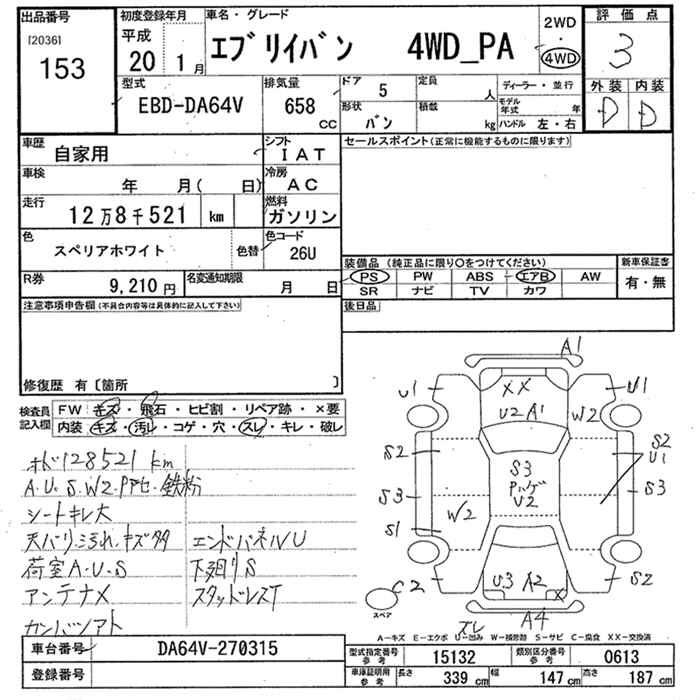 出品番号
[2036]
153
初度登録年月
平成
20 1月
車名・グレード
エブリイバン 4WD_PA
2WD
・
4WD
評価点
3
外装 内装
D D
型式
EBD-DA64V
排気量
658
CC
ドア 5
定員 人
形状 バン
積載 kg
ディーラー・並行
モデル年式 年
ハンドル 左・右
車歴
自家用
シフト
IAT
車検
年 月( 日)
冷房
AC
走行
12万8千521 km
燃料
ガソリン
色
スペリアホワイト
色替
色コード
26U
R券
9,210円
名変通知期限
月 日
セールスポイント(正常に機能するものに限ります)
装備品(純正品に限り○をつけてください)
PS PW ABS エアB AW
SR ナビ TV カワ
新車保証書
有・無
後日品
注意事項申告欄(不具合内容等は具体的に記入して下さい)
修復歴 有〔箇所 〕
検査員
記入欄
FW キズ・飛石・ヒビ割・リペア跡・×要
内装 キズ・汚レ・コゲ・穴・スレ・キレ・破レ
オド128521km
A.U.S.W2.P凹セ.鉄粉
シートキレ大
天バリ汚れ.キズ多
エンドパネルU
荷室A.U.S
下廻りS
アンテナ×
スタッドレスT
ガンバンアト
A1
U1
XX
U2 A1
W2
U1
S2
S2
U1
S3
S3
U2
S3
S3
S1
W2
C2
U3 A2
X
S2
A4
スペア
スレ
A-キズ E-エクボ U-凹み W-補修跡 S-サビ C-腐食 XX-交換済
車台番号
DA64V-270315
登録番号
型式指定番号
参考
15132
類別区分番号
参考
0613
車庫証明用
参考
長さ 339 cm
幅 147 cm
高さ 187 cm